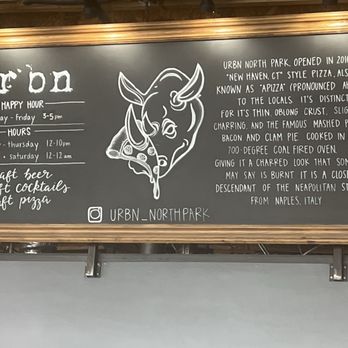 rbn
HAPPY HOUR
ay - Friday 3-5pm
HOURS
- thursday 12-10pm
- saturday 12-12am
aft beer
ft cocktails
ft pizza
URBN_NORTHPARK
URBN NORTH PARK, OPENED IN 201
"NEW HAVEN, CT" STYLE PIZZA, ALS
KNOWN AS "APIZZA" (PRONOUNCED AH
TO THE LOCALS. IT'S DISTINCT
FOR IT'S THIN OBLONG CRUST, SLIG
CHARRING, AND THE FAMOUS MASHED P
BACON AND CLAM PIE. COOKED IN
700-DEGREE COAL FIRED OVEN.
GIVING IT A CHARRED LOOK THAT SOM
MAY SAY IS BURNT IT IS A CLOSE
DESCENDANT OF THE NEAPOLITAN ST
FROM NAPLES, ITALY